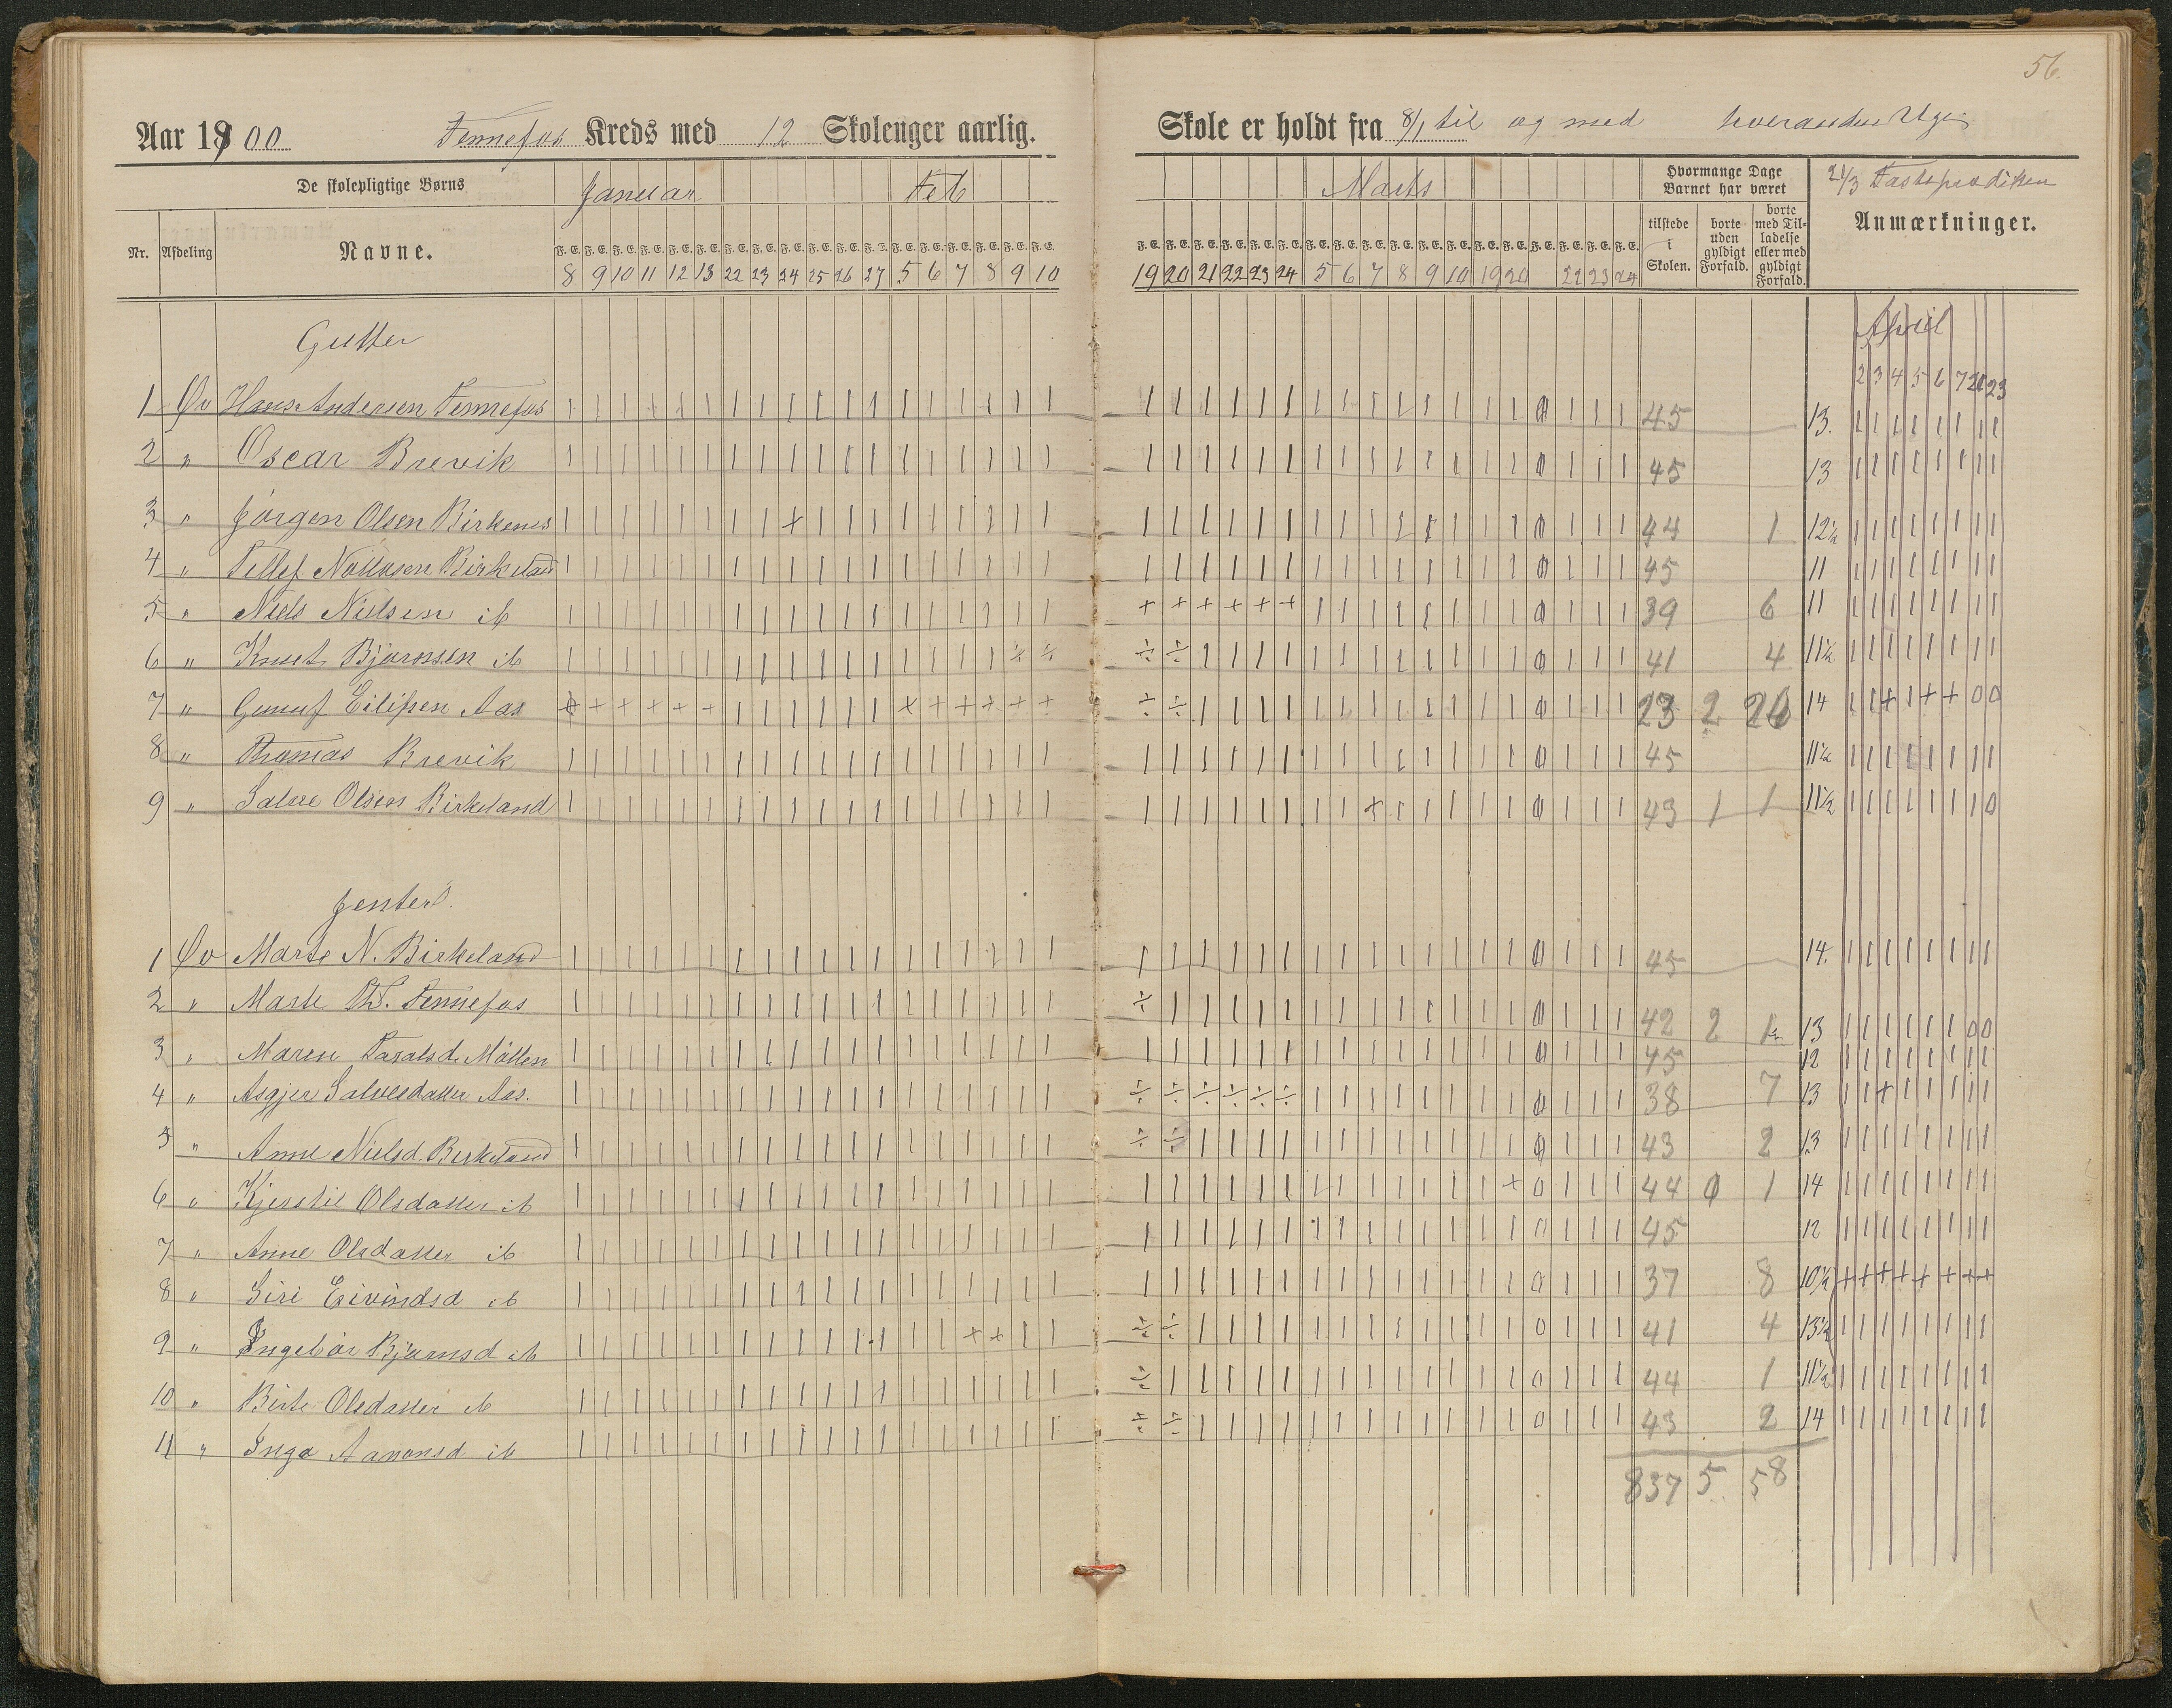 56.
Aar 1900 Tennefos Kreds med 12 Skoleuger aarlig.
Skole er holdt fra 8/1 til og med hveranden Uge
De skolepligtige Børns Januar Feb
Marts Hvormange Dage Barnet har været 21/3 Fasteprædiken
Nr. Afdeling Navne. F. E. F. E. F. E. F. E. F. E. F. E. F. E. F. E. F. E. F. E. F. E. F. E. F. E. F. E. F. E. F. E. F. E. F. E.
8 9 10 11 12 13 22 23 24 25 26 27 5 6 7 8 9 10
19 20 21 22 23 24 5 6 7 8 9 10 19 20 22 23 24
tilstede i Skolen. borte uden gyldigt Forfald. borte med Tilladelse eller med gyldigt Forfald. Anmærkninger.
Gutter
April
2 3 4 5 6 7 21 23
1 Øv Hans Andersen Tennefos 45 13.
2 " Oscar Brevik 45 13
3 " Jörgen Olsen Birkenes 44 1 12½
4 " Tellef Birkeland 45 11
5 " Niels Nielsen ib 39 6 11
6 " Knut Bjørnsen ib 41 4 11½
7 " Gunuf Eilifsen Aas 23 2 26 14
8 " Thomas Brevik 45 11½
9 " Salve Olsen Birkeland 43 1 1 11½
Jenter.
1 Øv Marte N. Birkeland 45 14.
2 " Marte Th. Tennefos 42 2 1 13
3 " Maren Taralsd. Möllen 45 12
4 " Asgjer Salvesdatter Aas. 38 7 13
5 " Anne Nielsd. Birkeland 43 2 13
6 " Kjerstie Olsdatter ib 44 0 1 14
7 " Anne Olsdatter ib 45 12
8 " Siri Eivindsd ib 37 8 10½
9 " Ingebör Bjørnsd ib 41 4 13½
10 " Birte Olsdatter ib 44 1 11½
11 " Inga Aanonsd ib 43 2 14
837 5 58